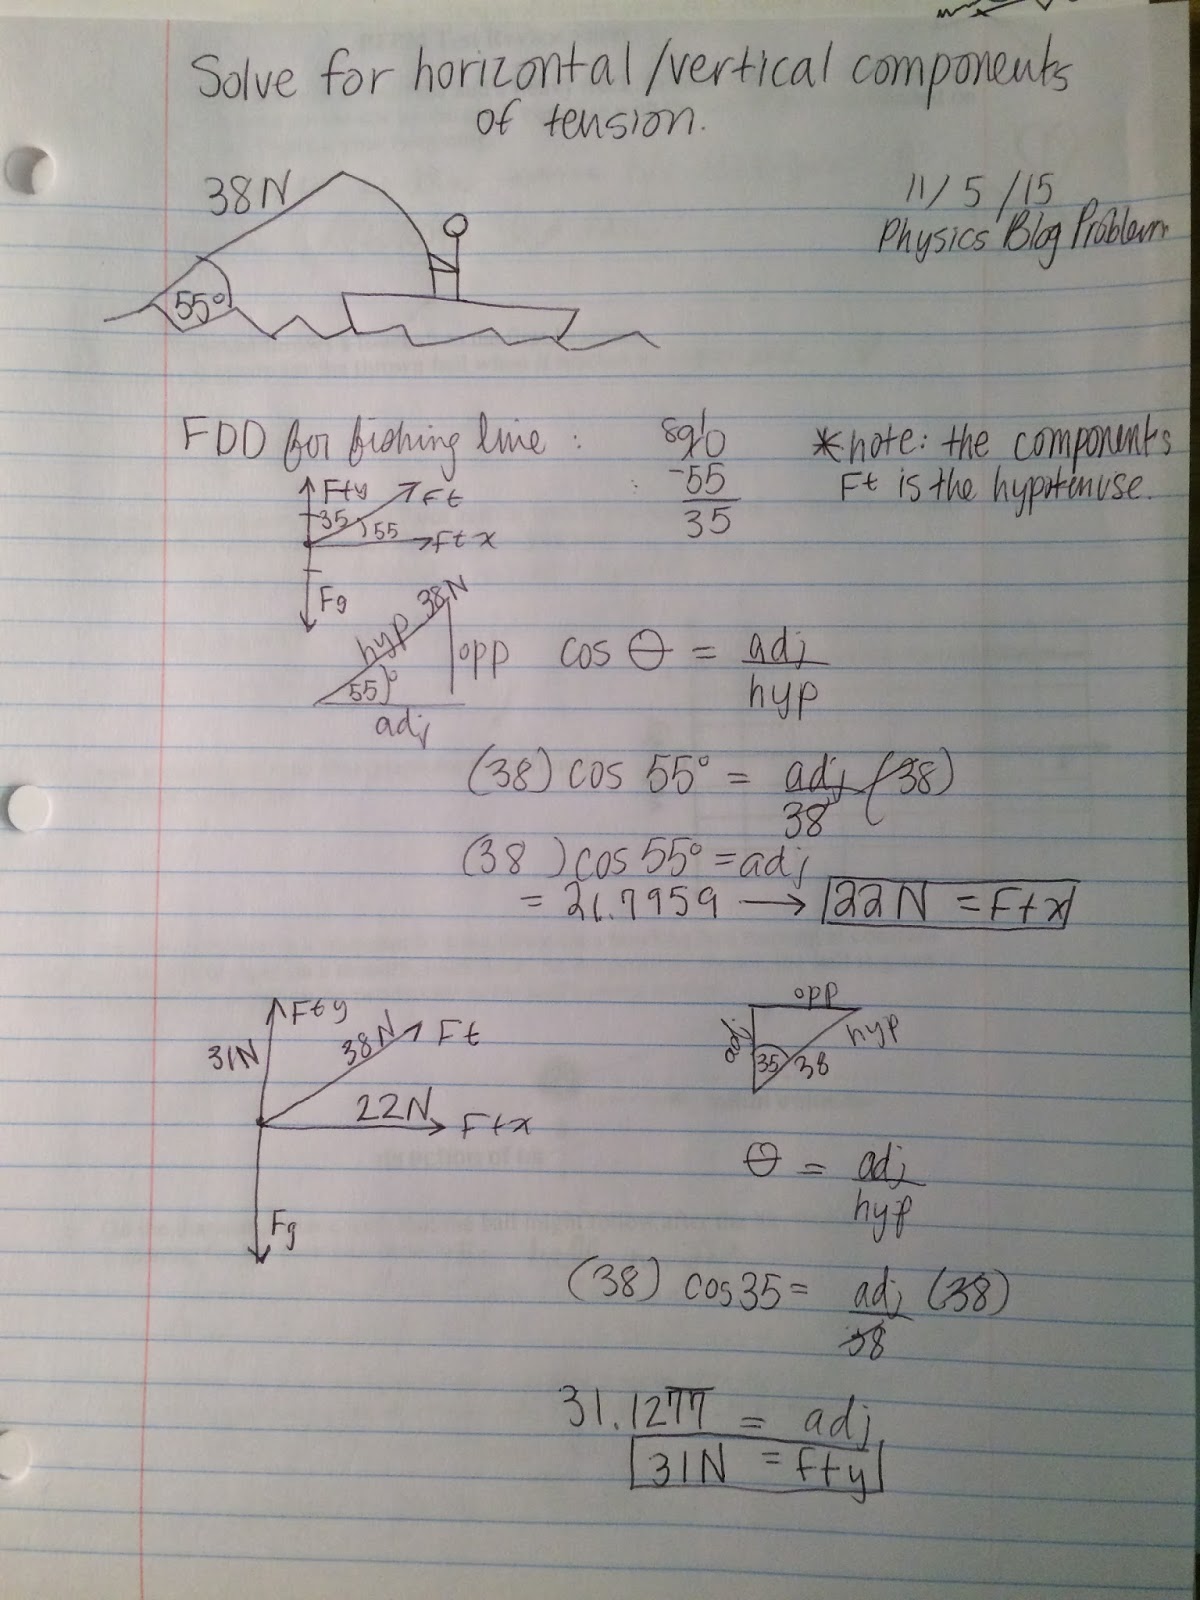 Solve for horizontal/vertical components
of tension.
38N
11/5/15
Physics Blog Problem
55°
FDD for fishing line:
8 9 10
-55
35
*note: the components
Ft is the hypotenuse.
Fty
Ft
35
55
Ftx
Fg
hyp 38N
opp
55°
adj
cos θ = adj
hyp
(38) cos 55° = adj (38)
38
(38) cos 55° = adj
= 21.7959 → 22N = Ftx
Fty
31N
38N
Ft
22N
Ftx
Fg
opp
adj
hyp
35
38
θ = adj
hyp
(38) cos 35 = adj (38)
38
31.1277 = adj
31N = Fty